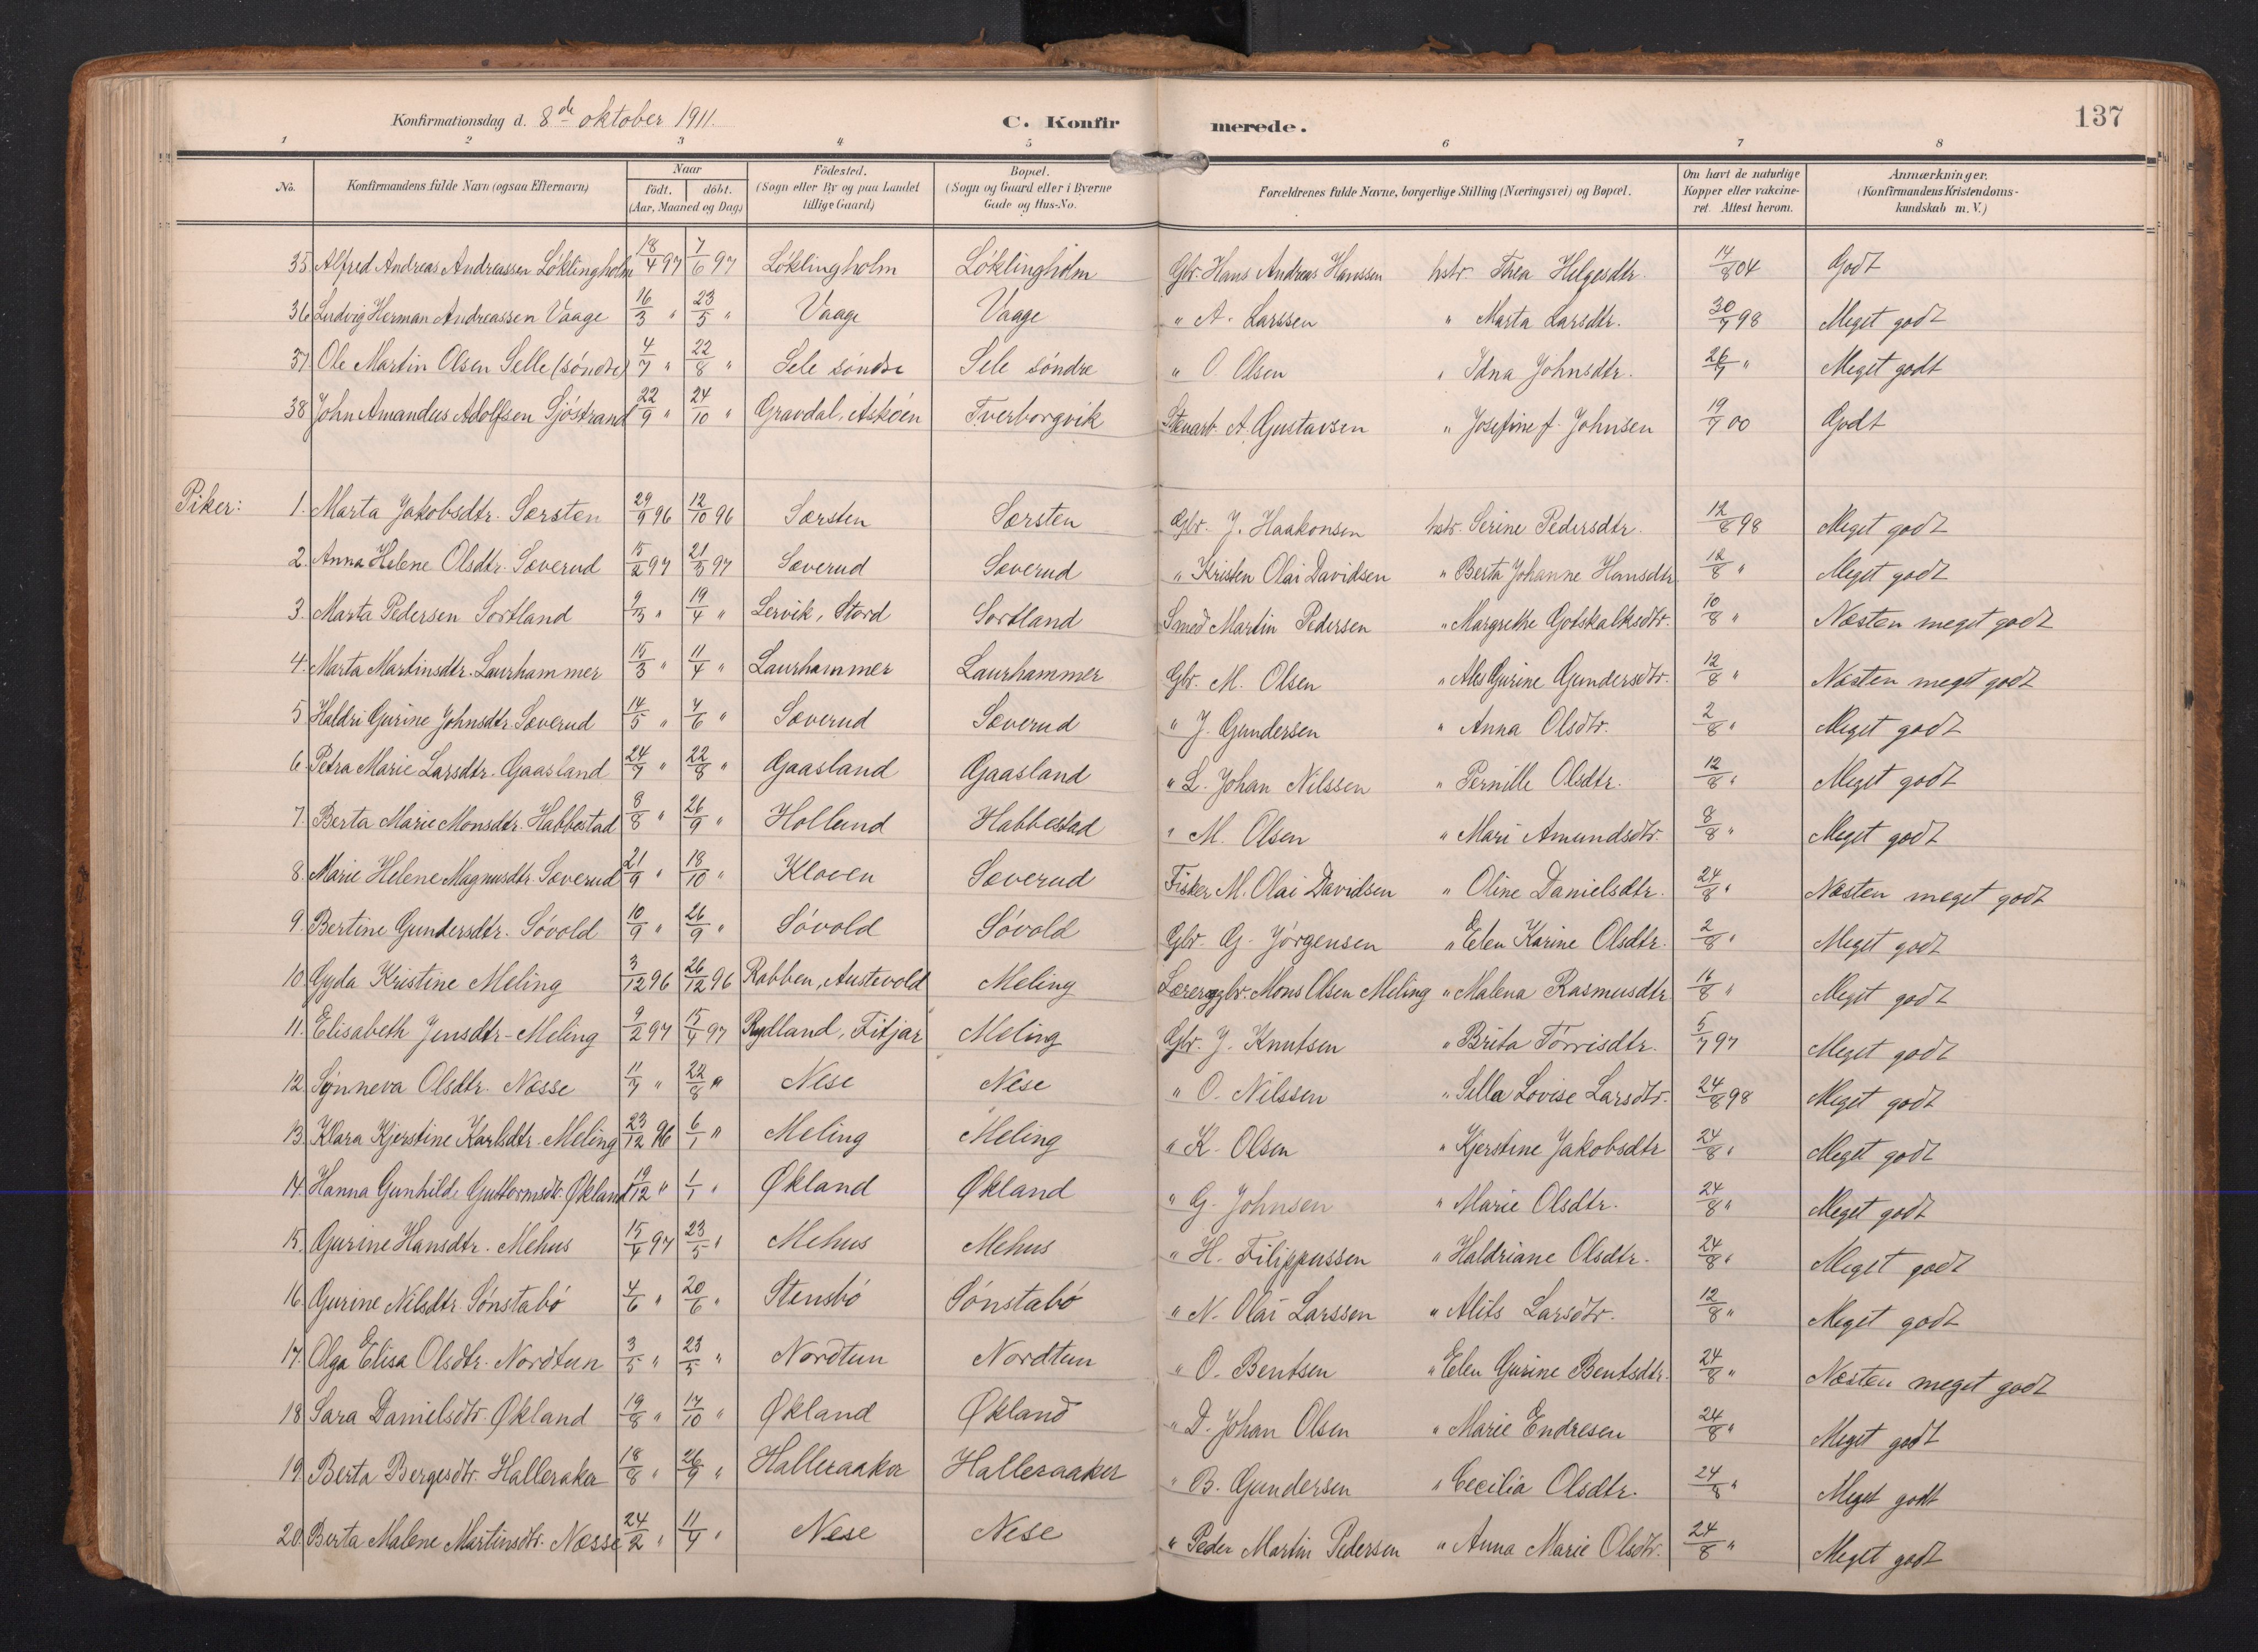 Konfirmationsdag d. 8de oktober 1911. C. Konfirmerede. 137
1 2 3 4 5 6 7 8
No. Konfirmandens fulde Navn (ogsaa Efternavn) Naar födt. döbt. (Aar, Maaned og Dag) Födested. (Sogn eller By og paa Landet tillige Gaard) Bopæl. (Sogn og Gaard eller i Byerne Gade og Hus-No. Forældrenes fulde Navne, borgerlige Stilling (Næringsvei) og Bopæl. Om havt de naturlige Kopper eller vakcineret. Attest herom. Anmærkninger. (Konfirmandens Kristendomskundskab m. V.)
35 Alfred Andreas Andreassen Löklingholm 18/4 97 7/6 97 Löklingholm Löklingholm Gbr. Hans Andreas Hanssen hstr. Thea Helgesdtr. 14/8 04 Godt
36 Ludvig Herman Andreassen Vaage 16/3 " 23/5 " Vaage Vaage " A. Larssen " Marta Larsdtr. 30/7 98 Meget godt
37 Ole Martin Olsen Selle (söndre) 4/7 " 22/8 " Sele söndre Sele söndre " O. Olsen " Idna Johnsdtr. 26/7 " Meget godt
38 John Amandus Adolfsen Sjöstrand 22/9 " 24/10 " Gravdal, Asköen Tverborgvik Stenarb. A. Gustavsen " Josefine f. Johnsen 19/7 00 Godt
Piker: 1. Marta Jakobsdtr. Særsten 29/9 96 12/10 96 Særsten Særsten Gbr. J. Haakonsen hstr. Serine Pedersdtr. 12/8 98 Meget godt
2. Anna Helene Olsdtr. Sæverud 15/2 97 21/3 97 Sæverud Sæverud " Kristen Olai Davidsen " Berta Johanne Hansdtr. 12/8 " Meget godt
3. Marta Pedersen Sortland 9/3 " 19/4 " Lervik, Stord Sortland Smed Martin Pedersen " Margrethe Gotskalksdtr. 10/8 " Næsten meget godt
4. Marta Martinsdtr. Laurhammer 15/3 " 11/4 " Laurhammer Laurhammer Gbr. M. Olsen " Ales Gurine Gundersdtr. 12/8 " Næsten meget godt
5 Haldri Gurine Johnsdtr. Sæverud 14/5 " 7/6 " Sæverud Sæverud " J. Gundersen " Anna Olsdtr. 2/8 " Meget godt
6. Petra Marie Larsdtr. Gaasland 24/7 " 22/8 " Gaasland Gaasland " L. Johan Nilssen " Pernille Olsdtr. 12/8 " Meget godt
7. Berta Marie Monsdtr. Habbestad 8/8 " 26/9 " Holland Habbestad " M. Olsen " Mari Amundsdtr. 8/8 " Meget godt
8. Marie Helene Magnusdtr. Sæverud 21/9 " 18/10 " Kloven Sæverud Fisker M. Olai Davidsen " Oline Danielsdtr. 24/8 " Næsten meget godt
9. Bertine Gundersdtr. Sövold 10/9 " 26/9 " Sövold Sövold Gbr. G. Jörgensen " Elen Karine Olsdtr. 2/8 " Meget godt
10 Gyda Kristine Meling 3/12 96 26/12 96 Rabben, Austevold Meling Lærer og gbr. Mons Olsen Meling " Malena Rasmusdtr 16/8 " Meget godt
11. Elisabeth Jensdtr. Meling 9/2 97 15/4 97 Rydland, Fitjar Meling Gbr. J. Knutsen " Brita Törrisdtr. 5/7 97 Meget godt
12 Synneva Olsdtr. Næsse 11/7 " 22/8 " Nese Nese " O. Nilssen " Sella Lovise Larsdtr. 24/8 98 Meget godt
13. Klara Kjerstine Karlsdtr. Meling 23/12 96 6/1 " Meling Meling " K. Olsen " Kjerstine Jakobsdtr 24/8 " Meget godt
14. Hanna Gunhilde Guttormsdtr. Økland 19/12 " 1/1 " Økland Økland " G. Johnsen " Marie Olsdtr. 24/8 " Meget godt
15. Gurine Hansdtr. Mehus 15/4 97 23/5 " Mehus Mehus " H. Filippussen " Haldriane Olsdtr. 24/8 " Meget godt
16. Gurine Nilsdtr. Sönstabö 4/6 " 20/6 " Stensbö Sönstabö " N. Olai Larssen " Alits Larsdtr. 12/8 " Meget godt
17. Olga Elisa Olsdtr. Nordtun 3/5 " 23/5 " Nordtun Nordtun " O. Bentsen " Elen Gurine Bentsdtr. 24/8 " Næsten meget godt
18 Sara Danielsdtr. Økland 19/8 " 17/10 " Økland Økland " D. Johan Olsen " Marie Endresen 24/8 " Meget godt
19. Berta Bergesdtr. Halleraker 18/8 " 26/9 " Halleraaker Halleraaker " B. Gundersen " Cecilia Olsdtr. 24/8 " Meget godt
20. Berta Malene Martinsdtr. Næsse 24/2 " 11/4 " Nese Nese " Peder Martin Pedersen " Anna Marie Olsdtr. 24/8 " Meget godt